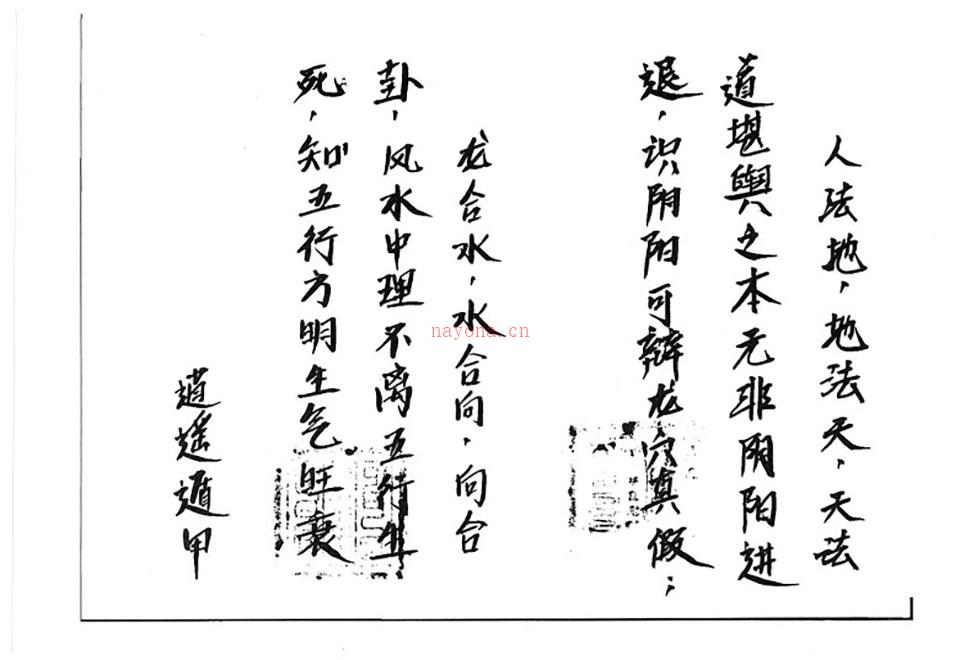 人法地，地法天，天法
道堪舆之本元非阴阳进
退，识阴阳可辩龙穴真假；
龙合水，水合向，向合
卦，风水中理不离五行生
死，知五行方明生气旺衰
逍遥遁甲
nayona.cn